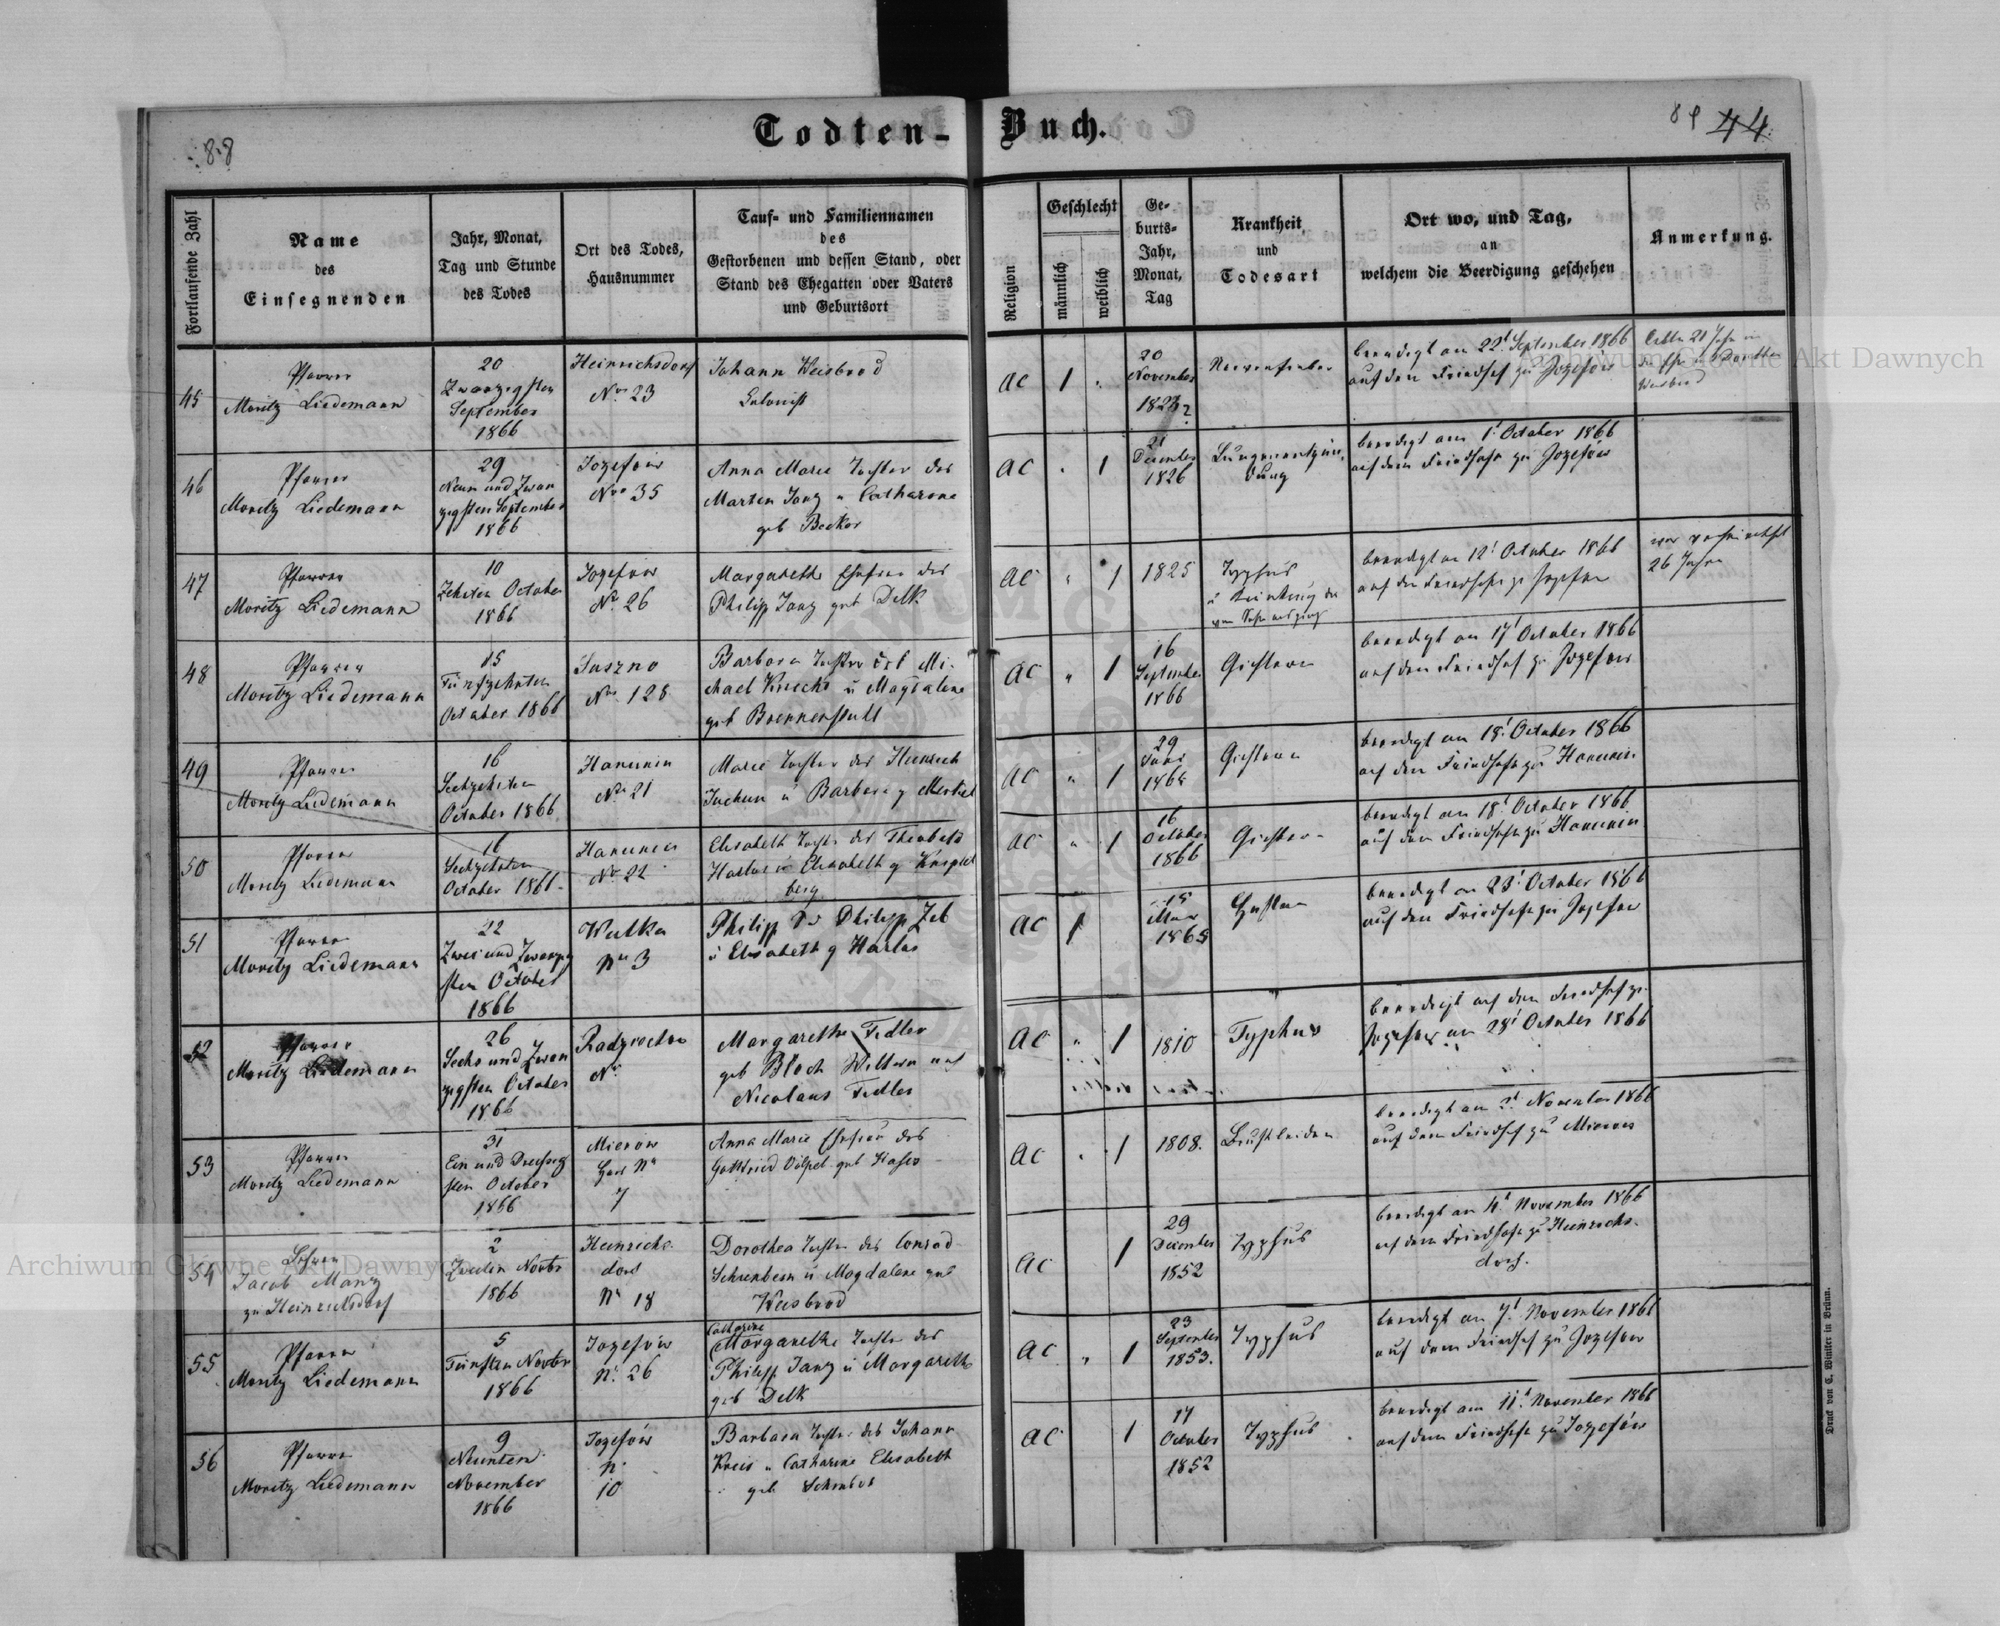 Todten-Buch.
88
89 44
Fortlaufende Zahl
Name
des
Einsegnenden
Jahr, Monat,
Tag und Stunde
des Todes
Ort des Todes,
Hausnummer
Tauf- und Familiennamen
des
Gestorbenen und dessen Stand, oder
Stand des Ehegatten oder Vaters
und Geburtsort
Religion
Geschlecht
männlich
weiblich
Ge-
burts-
Jahr,
Monat,
Tag
Krankheit
und
Todesart
Ort wo, und Tag,
an
welchem die Beerdigung geschehen
Anmerkung.
45
Pfarrer
Moritz Liedemann
20
Zwanzigsten
September
1866
Heinrichsdorf
Nro 23
Johann Weisbrod
Colonist
AC 1
20
November
Nervenfieber
beerdigt am 22t September 1866
auf dem Friedhof zu Jozefow
46
Pfarrer
Moritz Liedemann
29
Neun und Zwan
zigsten September
1866
Jozefow
Nro 35
Anna Marie Tochter des
Marten Janz u Catharine
geb Becker
AC 1
21
December
1826
Lungenentzün
dung
beerdigt am 1t October 1866
auf dem Friedhofe zu Jozefow
47
Pfarrer
Moritz Liedemann
10
Zehnten October
1866
Jozefow
No 26
Margarethe Ehefrau des
Philipp Janz geb Delk
AC " 1
1825
Typhus
beerdigt am 12t October 1866
auf dem Friedhofe zu Jozefow
war verheirathet
26 Jahre
48
Pfarrer
Moritz Liedemann
15
Fünfzehnten
October 1866
Suszno
Nro 128
Barbara Tochter des Mi-
chael Knecht u Magdalene
geb Brennenstuhl
AC " 1
16
September
1866
Gichtern
beerdigt am 17t October 1866
auf dem Friedhof zu Jozefow
49
Pfarrer
Moritz Liedemann
16
Sechzehnten
October 1866
Hanunin
No 21
Marie Tochter des Heinrich
AC " 1
29
Gichtern
beerdigt am 18t October 1866
auf dem Friedhofe zu Hanunin
50
Pfarrer
Moritz Liedemann
16
Sechzehnten
October 1866
Hanunin
No 22
Elisabeth Tochter des Theobald
Harlos u Elisabeth g Knippel
berg
AC " 1
16
October
1866
Gichtern
beerdigt am 18t October 1866
auf dem Friedhofe zu Hanunin
51
Pfarrer
Moritz Liedemann
22
Zwei und Zwanzig
sten October
1866
Wulka
No 3
Philipp S d Philipp Zeb
u Elisabeth g Harlos
AC 1
15
1865
Gichtern
beerdigt am 23t October 1866
auf dem Friedhofe zu Jozefow
52
Pfarrer
Moritz Liedemann
26
Sechs und Zwan
zigsten October
1866
No
Margarethe Fedler
geb Bloch Wittwe nach
Nicolaus Fedler
AC " 1
1810
Typhus
beerdigt auf dem Friedhof zu
Jozefow am 28t October 1866
53
Pfarrer
Moritz Liedemann
31
Ein und Dreißig
sten October
1866
Mierow
No
7
Anna Marie Ehefrau des
Gottfried Völpel geb Hafer
AC 1
1808.
Brustleiden
beerdigt am 2t November 1866
auf dem Friedhof zu Mierow
54
Lehrer
Jacob Manz
zu Heinrichsdorf
2
Zweiten Novbr
1866
Heinrichs-
dorf
No 18
Dorothea Tochter des Conrad
u Magdalene geb
Weisbrod
AC 1
29
December
1852
Typhus
beerdigt am 4t November 1866
auf dem Friedhofe zu Heinrichs-
dorf.
55
Pfarrer
Moritz Liedemann
5
Fünften Novbr
1866
Jozefow
No 26
Catharine
Margarethe Tochter des
Philipp Janz u Margarethe
geb Delk
AC " 1
23
September
1853.
Typhus
beerdigt am 7t November 1866
auf dem Friedhof zu Jozefow
56
Pfarrer
Moritz Liedemann
9
Neunten
November
1866
Jozefów
No
10
Barbara Tochter des Johann
Kreis u Catharine Elisabeth
geb
AC 1
17
October
1852
Typhus
beerdigt am 11t November 1866
auf dem Friedhofe zu Jozefów
Druck von C. Winiker in Brünn.
Archiwum Główne Akt Dawnych
Archiwum Główne Akt Dawnych